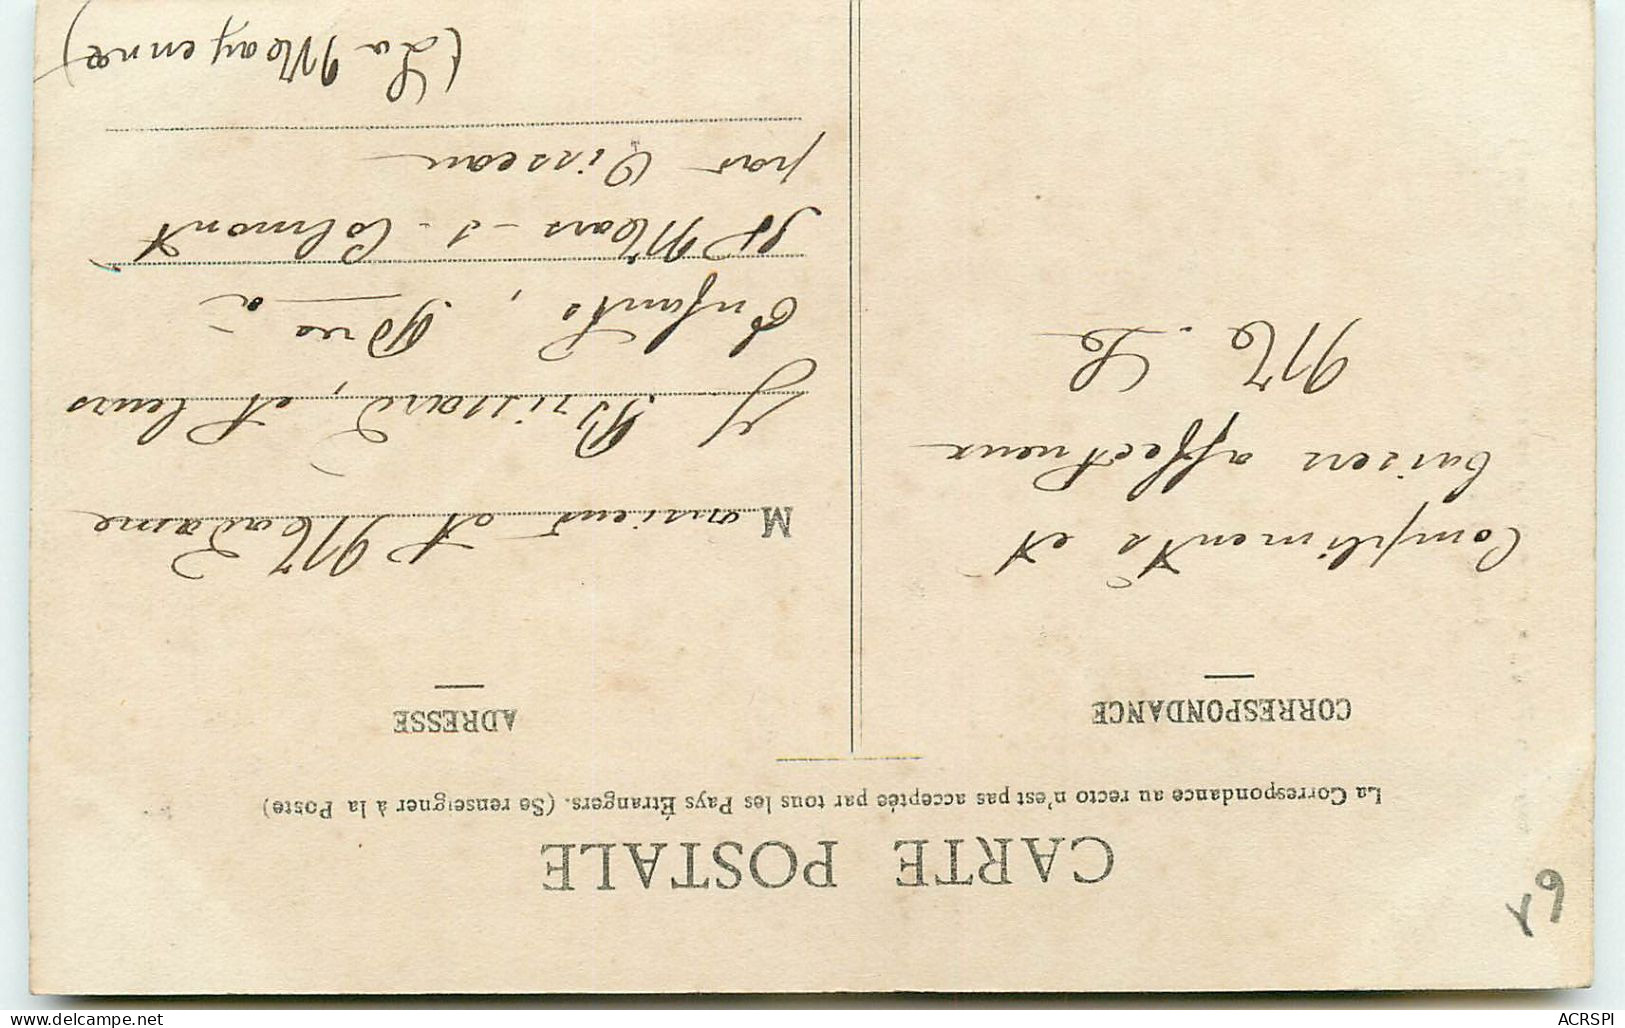 CARTE POSTALE
La Correspondance au recto n'est pas acceptée par tous les Pays Étrangers. (Se renseigner à la Poste)
CORRESPONDANCE
Compliments et
baisers affectueux
M. Le
ADRESSE
Monsieur et Madame
Brissard, et leurs
Enfants,
à
St Mars-s-Colmont
par Oisseau
(La Mayenne)
delcampe.net
ACRSPI